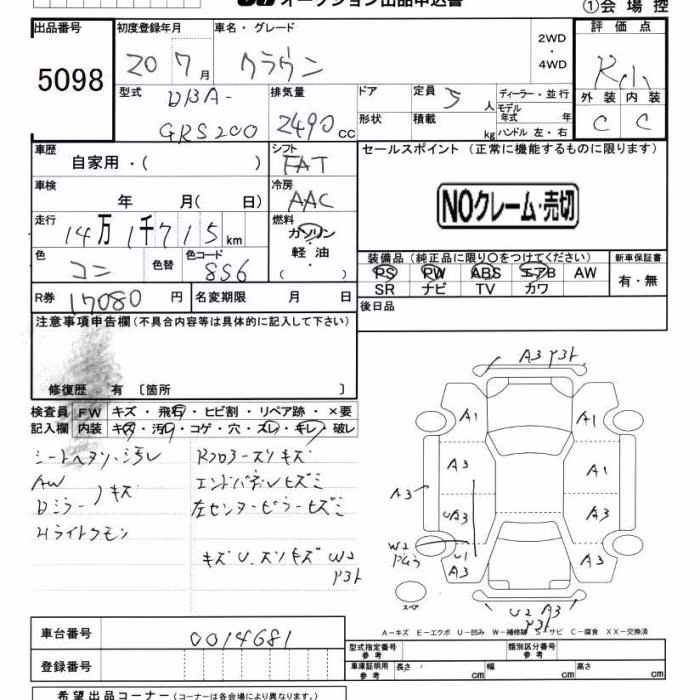 オークション出品申込書 ①会場控
出品番号 初度登録年月 車名・グレード 2WD 評価点
5098 20 7月 クラウン 4WD
型式 DBA- 排気量 ドア 定員 5人 ディーラー・並行 外装 内装
GRS200 2490cc 形状 積載 kg モデル年式 年 C C
ハンドル 左・右
車歴 シフト セールスポイント (正常に機能するものに限ります)
自家用・( ) FAT
車検 冷房
年 月( 日) AAC NOクレーム・売切
走行 燃料
14万1千715km ガソリン
色 色替 色コード 軽油 装備品 (純正品に限り○をつけてください) 新車保証書
コン 8S6 ( ) PS PW ABS エアB AW 有・無
SR ナビ TV カワ
R券 17080円 名変期限 月 日 後日品
注意事項申告欄 (不具合内容等は具体的に記入して下さい)
修復歴 有 〔箇所 〕
検査員 FW キズ・飛石・ヒビ割・リペア跡・×要
記入欄 内装 キズ・汚れ・コゲ・穴・スレ・キレ・破レ
エンドパネルヒズミ
AW キズ
Dミラー 左センターピラーヒズミ
Hライトクモン
A3
A1 A1
A3 A1
A3 A3 A3
W2 U1
A3 A3
U2 A3
スペア
A-キズ E-エクボ U-凹み W-補修跡 S-サビ C-腐食 XX-交換済
車台番号 0014681 型式指定番号 参考 類別区分番号 参考
登録番号 車庫証明用 参考 長さ cm 幅 cm 高さ cm
希望出品コーナー (コーナーは各会場により異なります。)